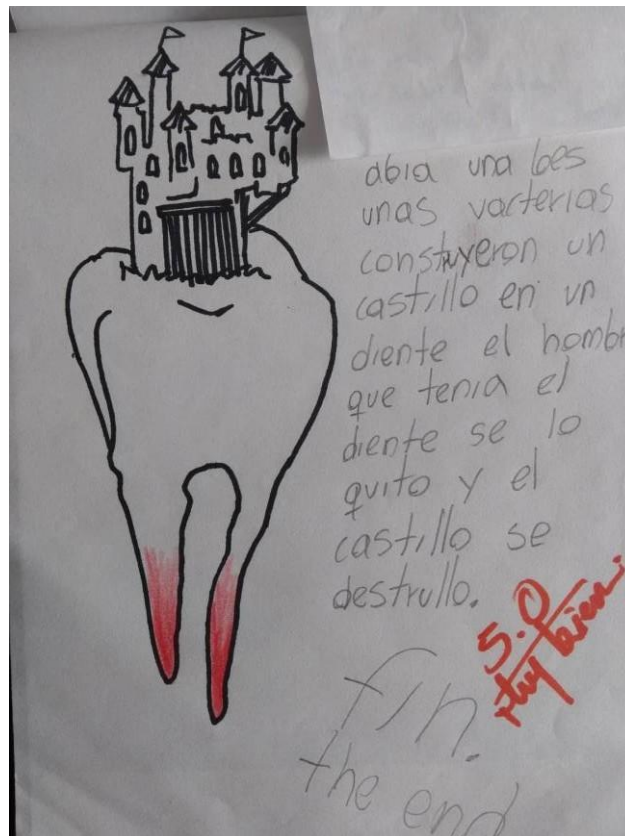 abia una bes
unas vacterias
construyeron un
castillo en un
diente el hombr
que tenia el
diente se lo
quito y el
castillo se
destrullo.
5.0
Muy bien
fin.
the end